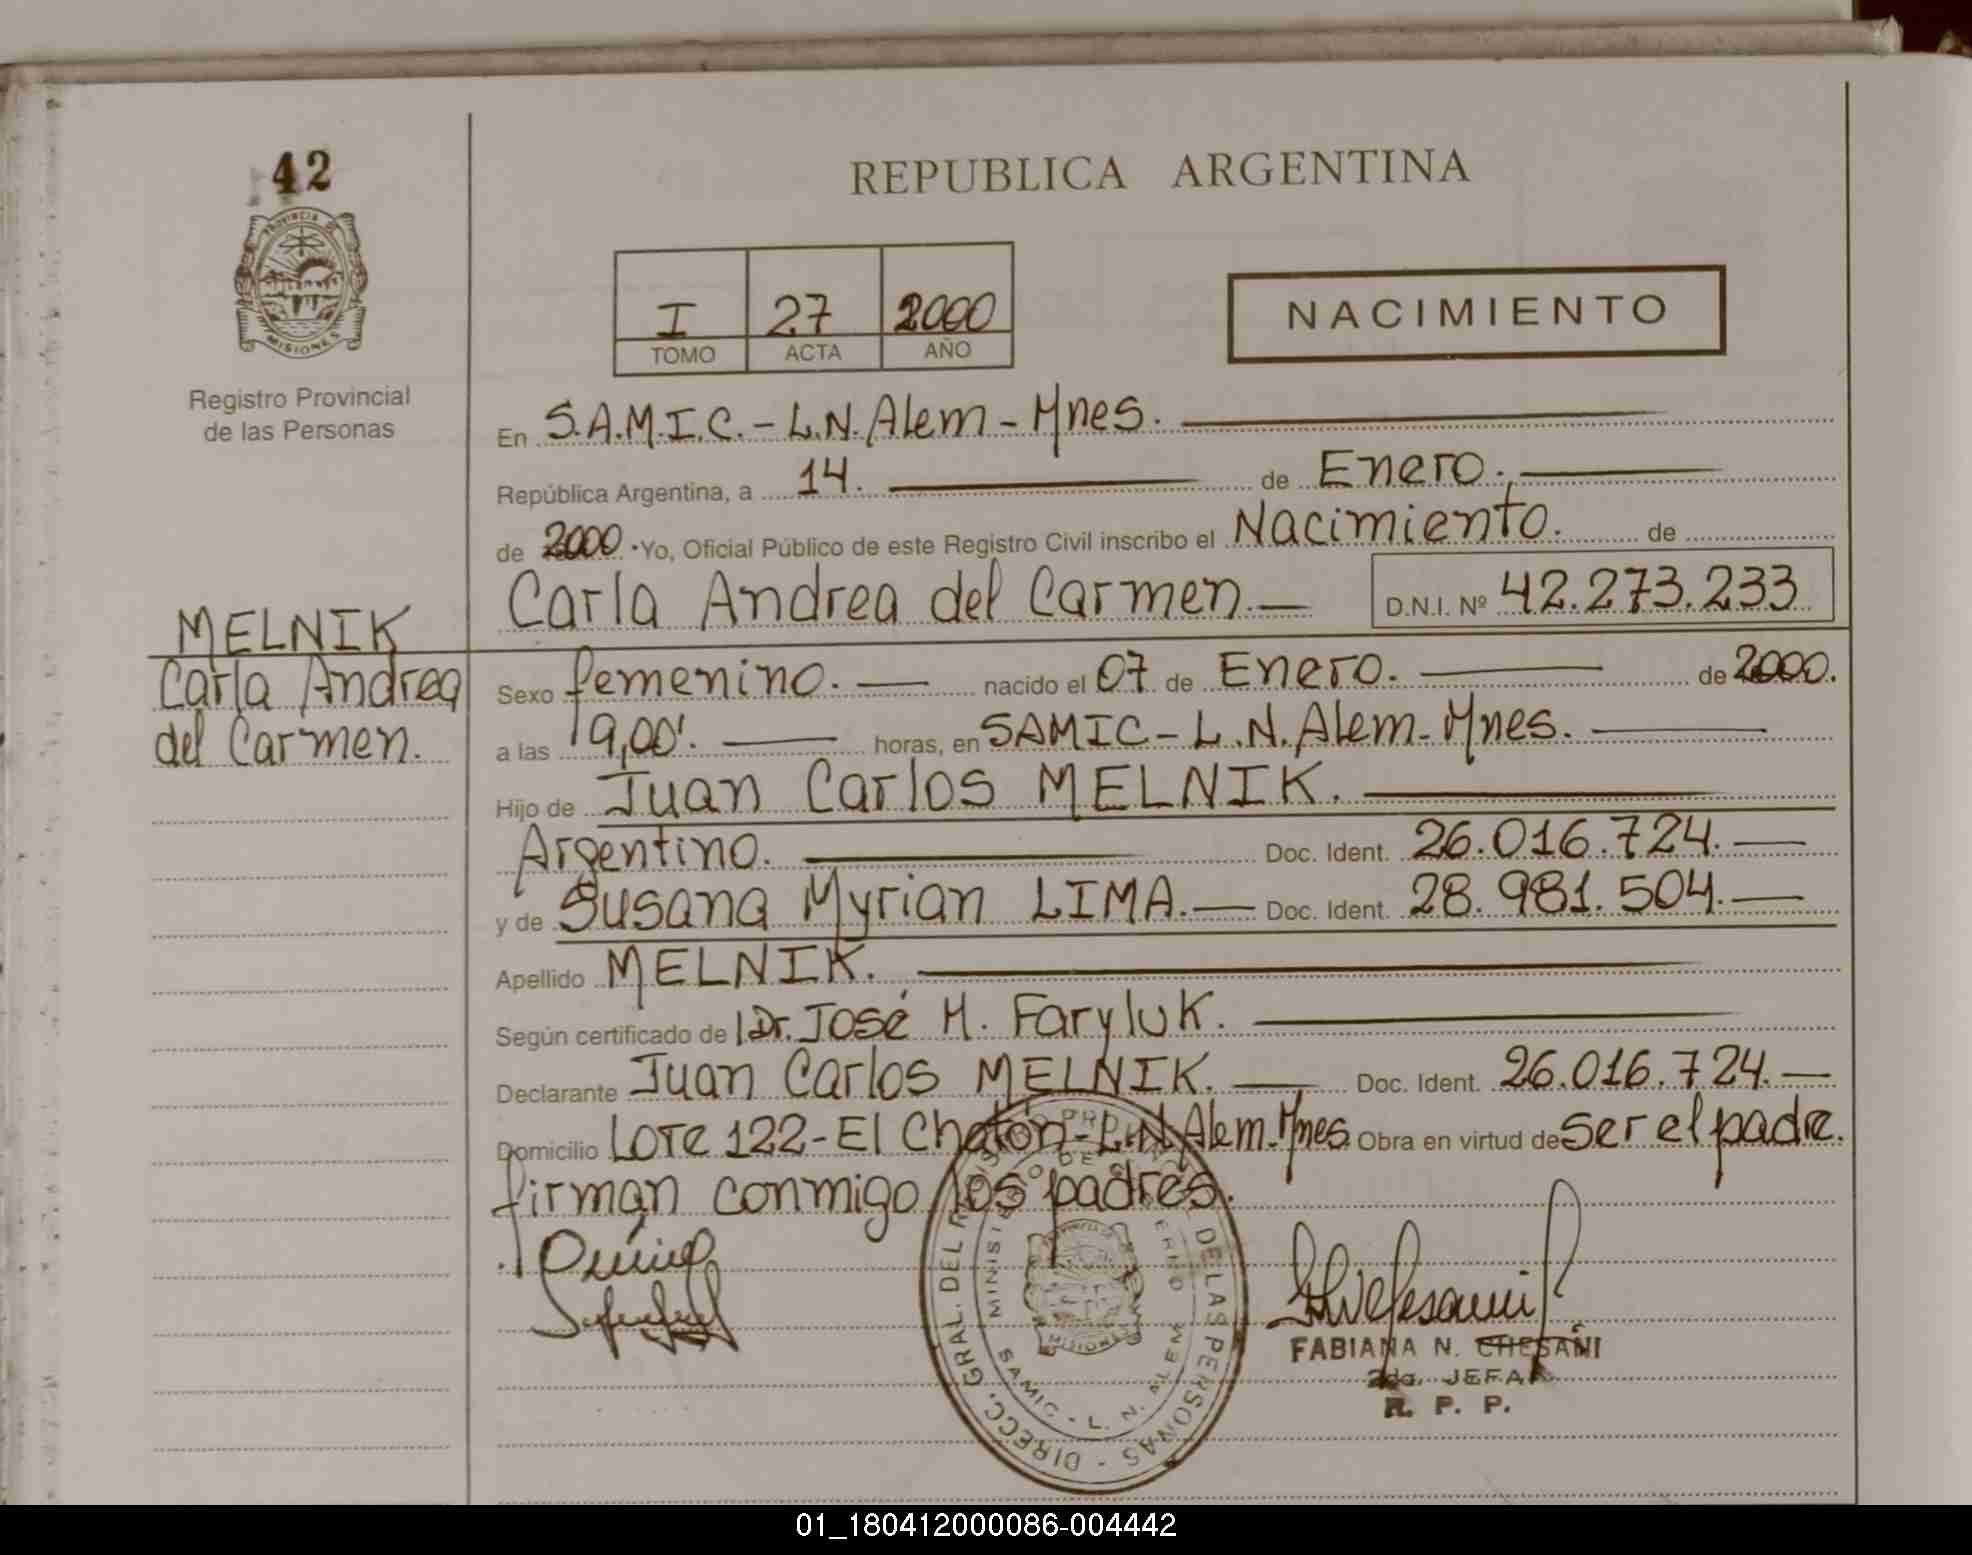 42
PROVINCIA DE
MISIONES
Registro Provincial
de las Personas
MELNIK
Carla Andrea
del Carmen.
REPUBLICA ARGENTINA
I 27 2000
TOMO ACTA AÑO
NACIMIENTO
En S.A.M.I.C.- L.N. Alem - Mnes.
República Argentina, a 14. de Enero.
de 2000. Yo, Oficial Público de este Registro Civil inscribo el Nacimiento. de
Carla Andrea del Carmen.— D.N.I. Nº 42.273.233
Sexo femenino.— nacido el 07 de Enero. de 2000.
a las 19,00'. horas, en SAMIC - L.N. Alem - Mnes.
Hijo de Juan Carlos MELNIK.
Argentino. Doc. Ident. 26.016.724.—
y de Susana Myrian LIMA.— Doc. Ident. 28.981.504.—
Apellido MELNIK.
Según certificado de Dr. José H. Faryluk.
Declarante Juan Carlos MELNIK. Doc. Ident. 26.016.724.—
Domicilio Lote 122 - El Chatón - L.N. Alem - Mnes Obra en virtud de ser el padre.
firman conmigo los padres.
DIRECC. GRAL. DEL REGISTRO PROVINCIAL DE LAS PERSONAS
MINISTERIO DE GOBIERNO
MISIONES
SAMIC - L. N. ALEM
FABIANA N. CHESAÑI
2da. JEFA
R. P. P.
01_180412000086-004442